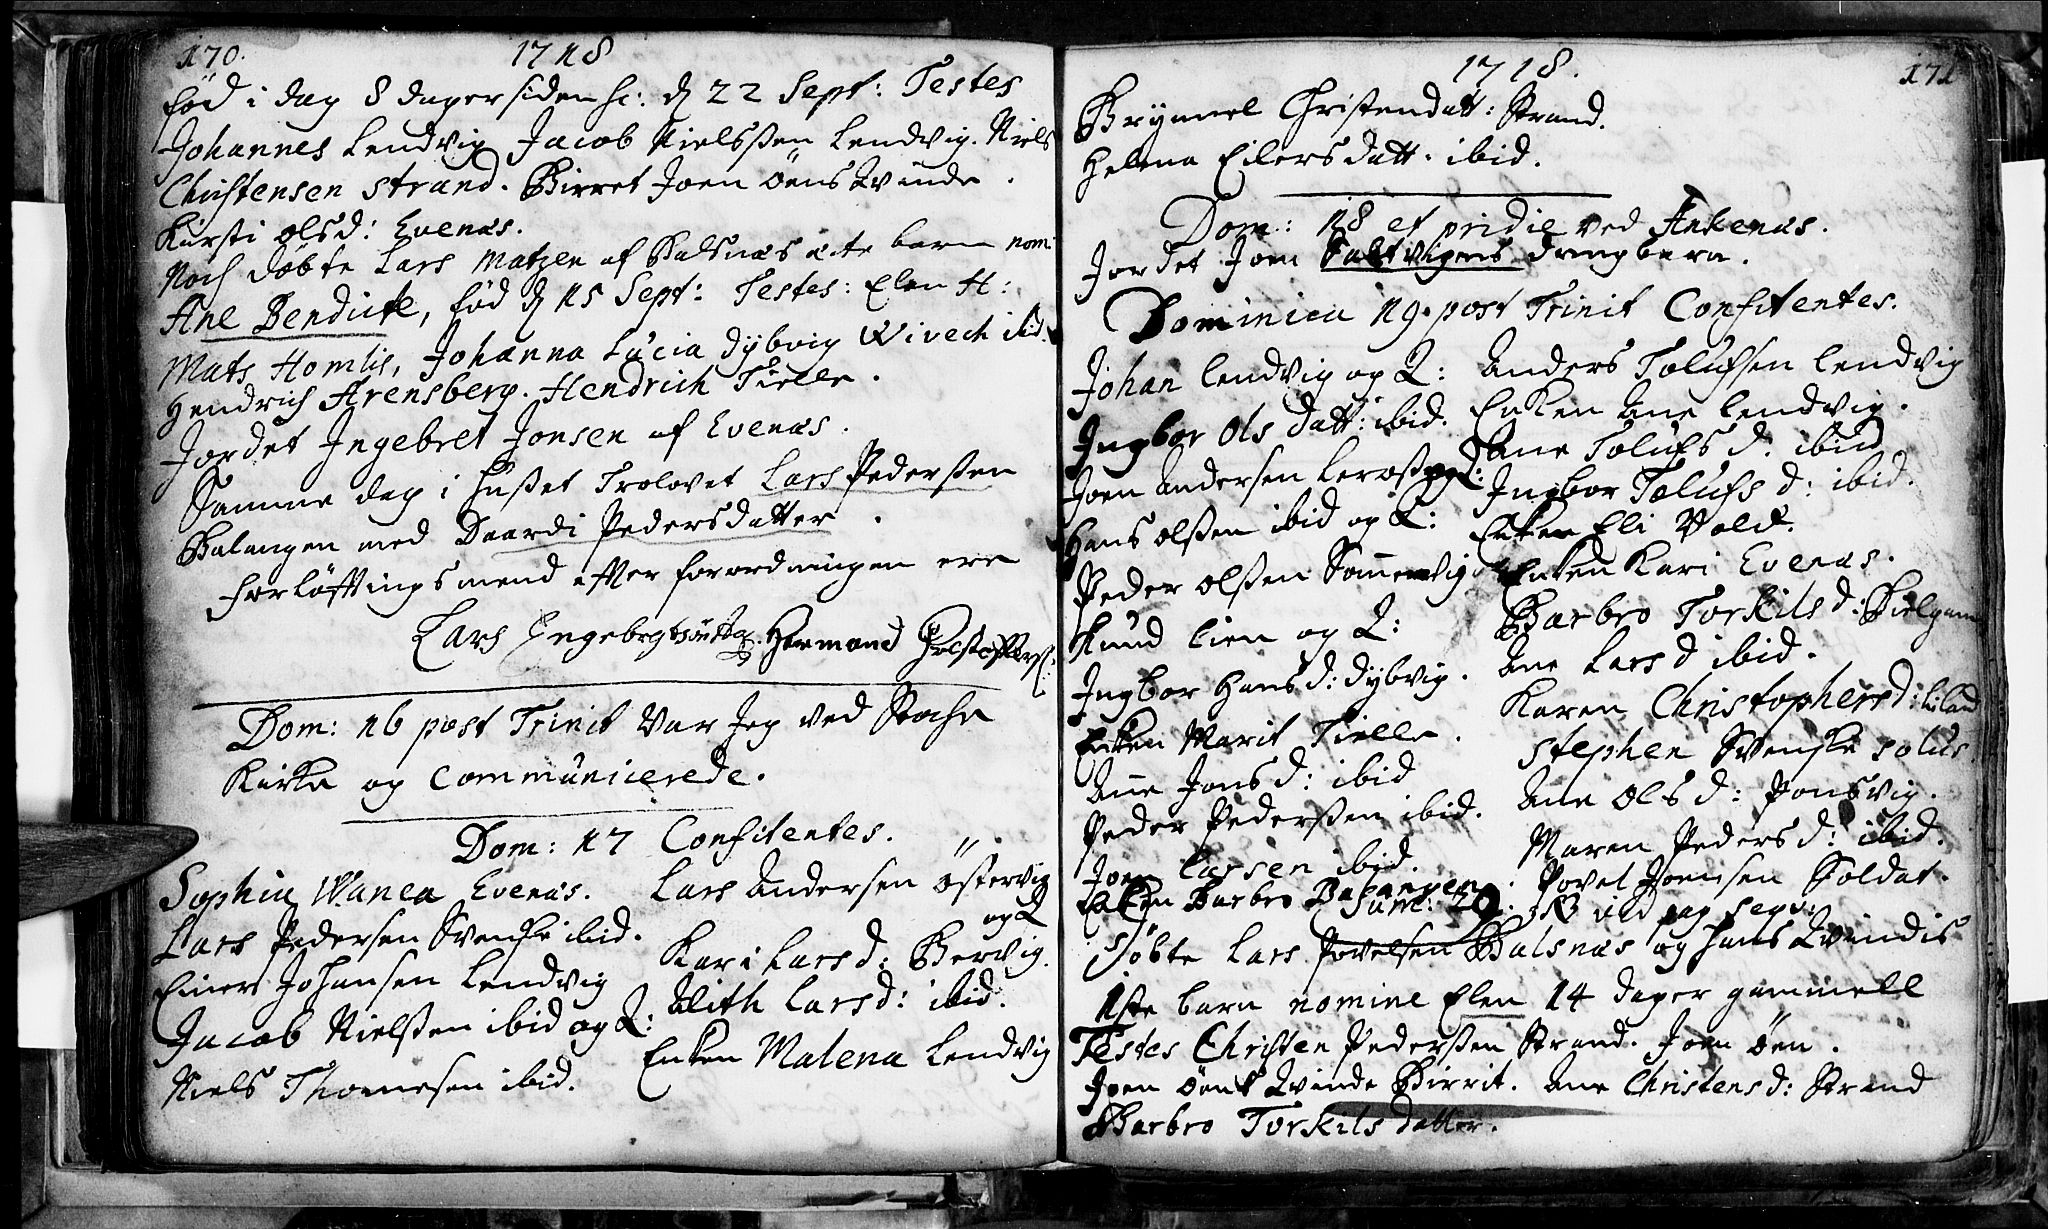 170. 1718
fød i dag 8 dager siden sc: d 22 Sept: Testes
Johannes Lendvig Jacob Nielssen Lendvig. Niels
Christensen Strand. Birret Joen Öens Qvinde.
Kirsti Olsd: Evenæs.
Noch döbte Lars Matzen af Balsnæs ægte barn nom:
Ane Bendicte, fød d 15 Sept: Testes: Elen H:
Mats Homlis, Johanna Lucia Dybvig Wivech ibid.
Hendrich Arensberg. Hendrich Tielle.
Jordet Ingebret Jonsen af Evenæs.
Samme dag i huset Trolovet Lars Pederssen
Balangen med Daardi Pedersdatter.
Forløftingsmend efter forordningen ere
Lars Engebrgtsön Hermand
Dom: 16 post Trinit Var Jeg ved
Kirke og communicerede.
Dom: 17 Confitentes.
Sophia Wanea Evenæs.
Lars Pedersen Svenske ibid.
Einer Johansen Lendvig
Jacob Nielssen ibid og Q:
Niels Thomesen ibid.
Lars Andersen Östervig
og Q
Kari Larsd: Bervig.
Larsd: ibid.
Enken Malena Lendvig
1718. 171
Brynnel Christendatt: Strand.
Helena Eilersdatt. ibid.
Dom: 18 et pridie ved Ankenæs.
Jordet Joen drengbarn.
Dominica 19. post Trinit Confitentes.
Johan Lendvig og Q:
Ingbor Olsdatt: ibid.
Joen Andersen
Hans Olssen ibid og Q:
Peder Olssen Sommervig
Knud Lien og Q:
Ingbor Hansd: Dybvig.
Enken Marit Tielle.
Ane Jonsd: ibid
Peder Pederssen ibid.
Joen Larsen ibid.
Enken Barbro Balangen
Anders Tolufsen Lendvig
Enken Ane Lendvig.
Ane Tolufsd: ibid
Ingbor Tolufsd: ibid.
Enken Eli Vold.
Enken Kari Evenæs.
Barbro Torkilsd:
Ane Larsd ibid.
Karen Christophersd: Liland
Stephen Svenske solus
Ane Olsd: Ponsvig.
Maren Pedersd: ibid.
Povel Joensen Soldat.
Sum: 29.
Döbte Lars Povelsen Balsnæs og hans Qvindis
1ste barn nomine Elen 14 dager gammell
Testes Christen Pederssen Strand. Joen Öen.
Joen Öens Qvinde Birrit. Ane Christensd: Strand
Barbro Torkilsdatter.